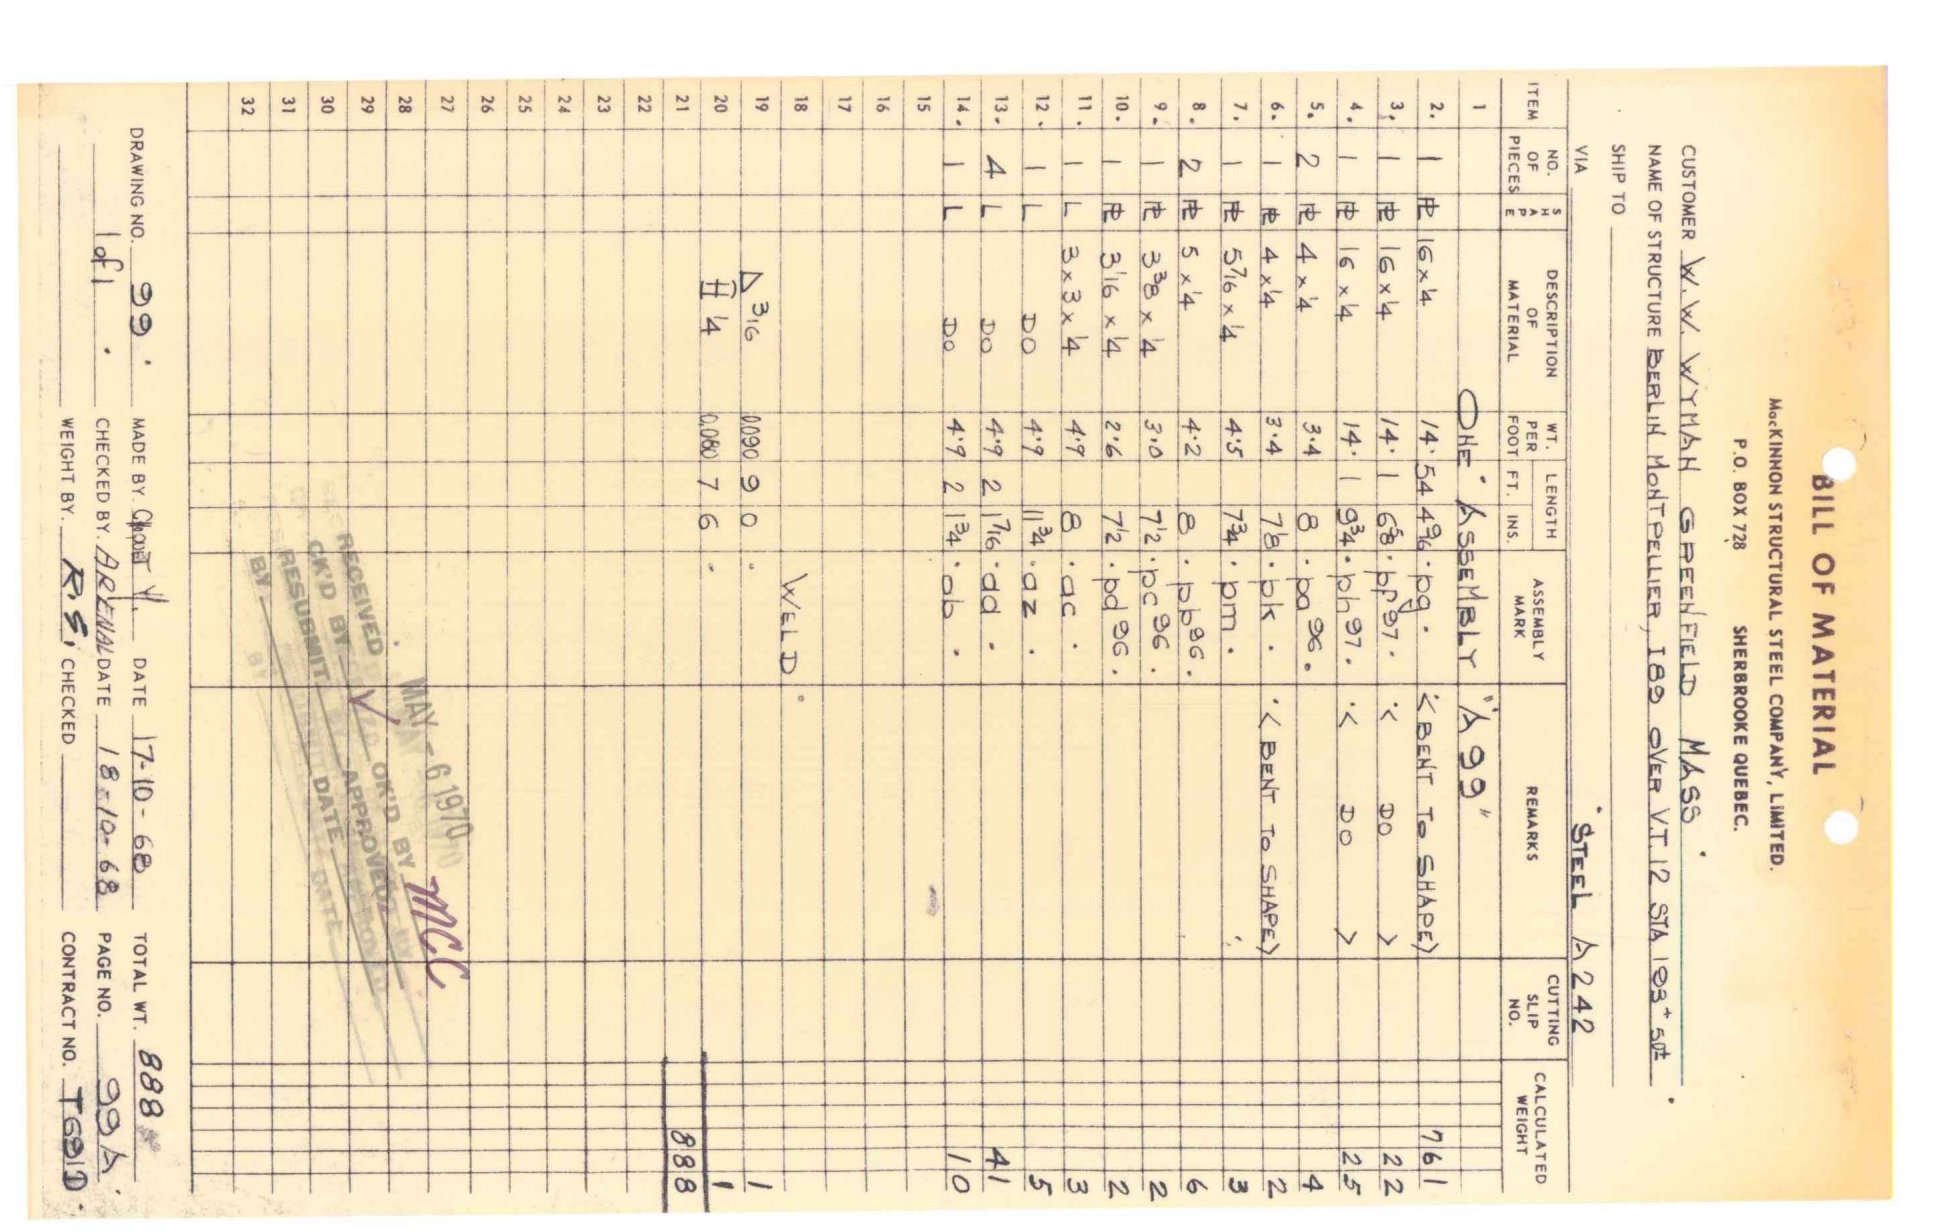 BILL OF MATERIAL
McKINNON STRUCTURAL STEEL COMPANY, LIMITED.
P.O. BOX 728 SHERBROOKE QUEBEC.
CUSTOMER W. W. WYMAN GREENFIELD MASS
NAME OF STRUCTURE BERLIN MONTPELLIER, I89 OVER V.T. 12 STA 193+50±
SHIP TO
VIA STEEL A 242
ITEM NO. OF PIECES SHAPE DESCRIPTION OF MATERIAL WT. PER FOOT LENGTH FT. INS. ASSEMBLY MARK REMARKS CUTTING SLIP NO. CALCULATED WEIGHT
1 ONE ASSEMBLY "A99"
2. 1 PL 16 x 1/4 14.5 54 4 9/16 pg. < BENT TO SHAPE > 761
3. 1 PL 16 x 1/4 14. 1 6 5/8 pp97. < DO > 22
4. 1 PL 16 x 1/4 14. 1 9 3/4 ph97. < DO > 25
5. 2 PL 4 x 1/4 3.4 8 pa96. 4
6. 1 PL 4 x 1/4 3.4 7 1/8 pk. < BENT TO SHAPE > 2
7. 1 PL 5 7/16 x 1/4 4.5 7 3/4 pm. 3
8. 2 PL 5 x 1/4 4.2 8 pb96. 6
9. 1 PL 3 3/8 x 1/4 3.0 7 1/2 pc96. 2
10. 1 PL 3 1/16 x 1/4 2.6 7 1/2 pd96. 2
11. 1 L 3 x 3 x 1/4 4.9 8 ac. 3
12. 1 L DO 4.9 11 3/4 az. 5
13. 4 L DO 4.9 2 1 7/16 dd. 41
14. 1 L DO 4.9 2 1 3/4 ab. 10
15
16
17
18 WELD.
19 3/16 0.090 9 0 1
20 1/4 0.080 7 6 1
21 888
22
23
24
25
26
27
28
29
30
31
32
MAY - 6 1970
RECEIVED
CK'D BY OK'D BY MCC
RESUBMIT APPROVED
BY DATE
DRAWING NO. 99. MADE BY. DATE 17-10-68 TOTAL WT. 888
1 of 1 CHECKED BY. ARENAL DATE 18-10-68 PAGE NO. 99A.
WEIGHT BY. R.S. CHECKED CONTRACT NO. T691D.